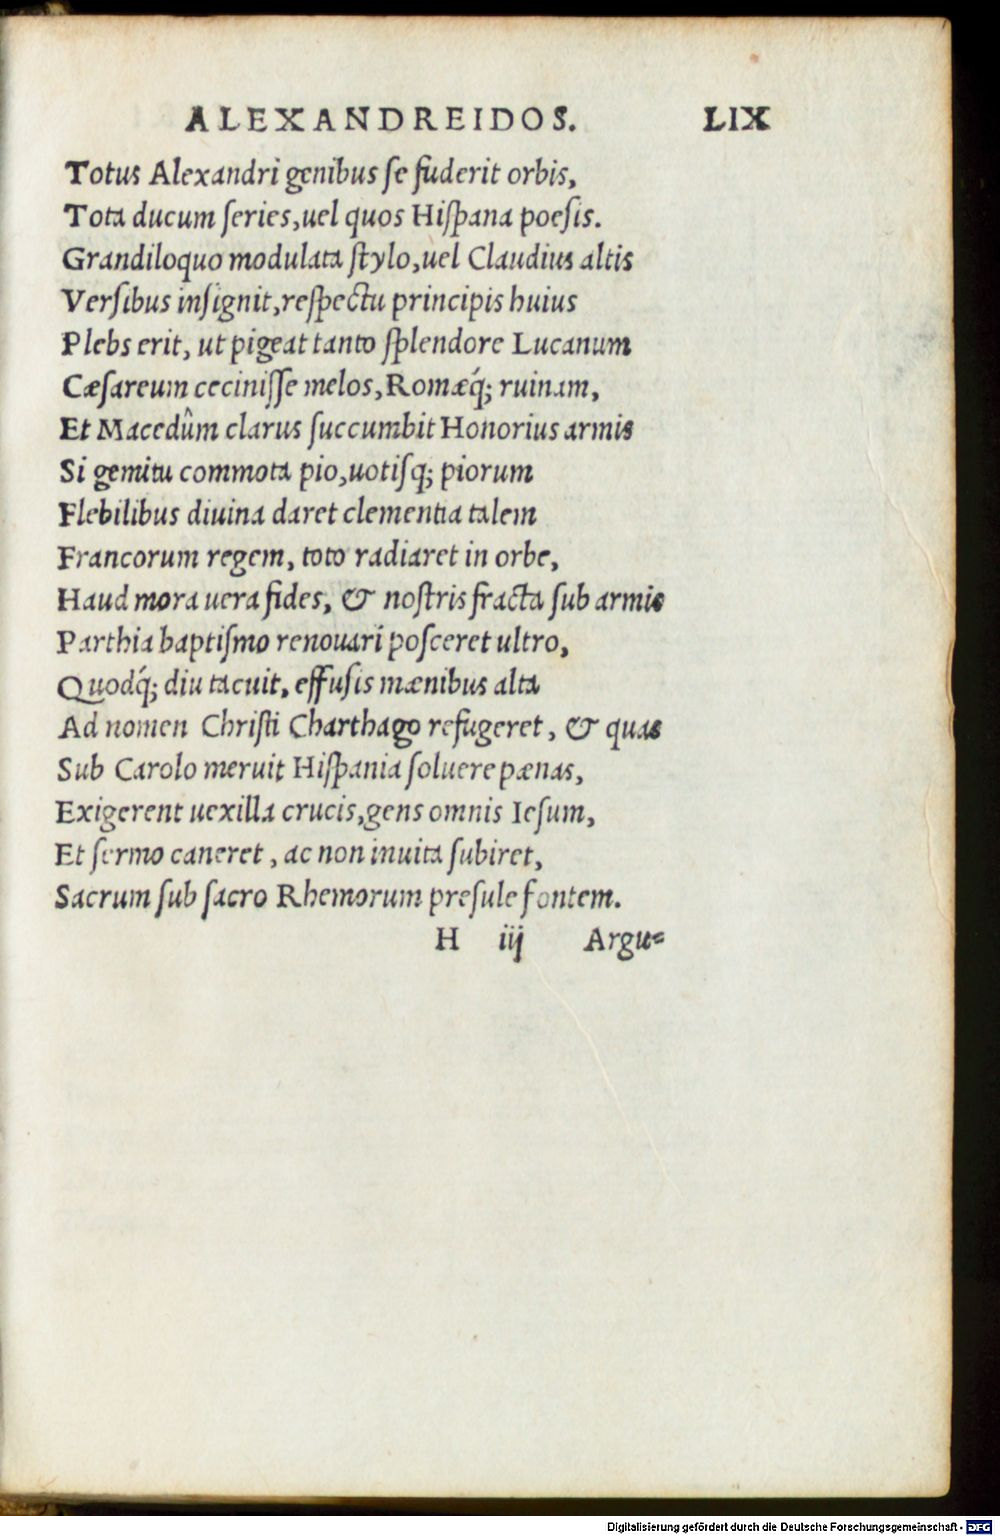 ALEXANDREIDOS. LIX
Totus Alexandri genibus se fuderit orbis,
Tota ducum series,uel quos Hiſpana poeſis.
Grandiloquo modulata ſtylo,uel Claudius altis
Verſibus inſignit,reſpectu principis huius
Plebs erit, ut pigeat tanto ſplendore Lucanum
Cæſareum ceciniſſe melos,Romæq́; ruinam,
Et Macedûm clarus ſuccumbit Honorius armis
Si gemitu commota pio,uotiſq; piorum
Flebilibus diuina daret clementia talem
Francorum regem, toto radiaret in orbe,
Haud mora uera fides, & noſtris fracta ſub armis
Parthia baptiſmo renouari poſceret ultro,
Quodq́; diu tacuit, effuſis mænibus alta
Ad nomen Chriſti Charthago refugeret, & quas
Sub Carolo meruit Hiſpania ſoluere pænas,
Exigerent uexilla crucis,gens omnis Ieſum,
Et ſermo caneret, ac non inuita ſubiret,
Sacrum ſub ſacro Rhemorum preſule fontem.
H iij Argu=
Digitalisierung gefördert durch die Deutsche Forschungsgemeinschaft - DFG